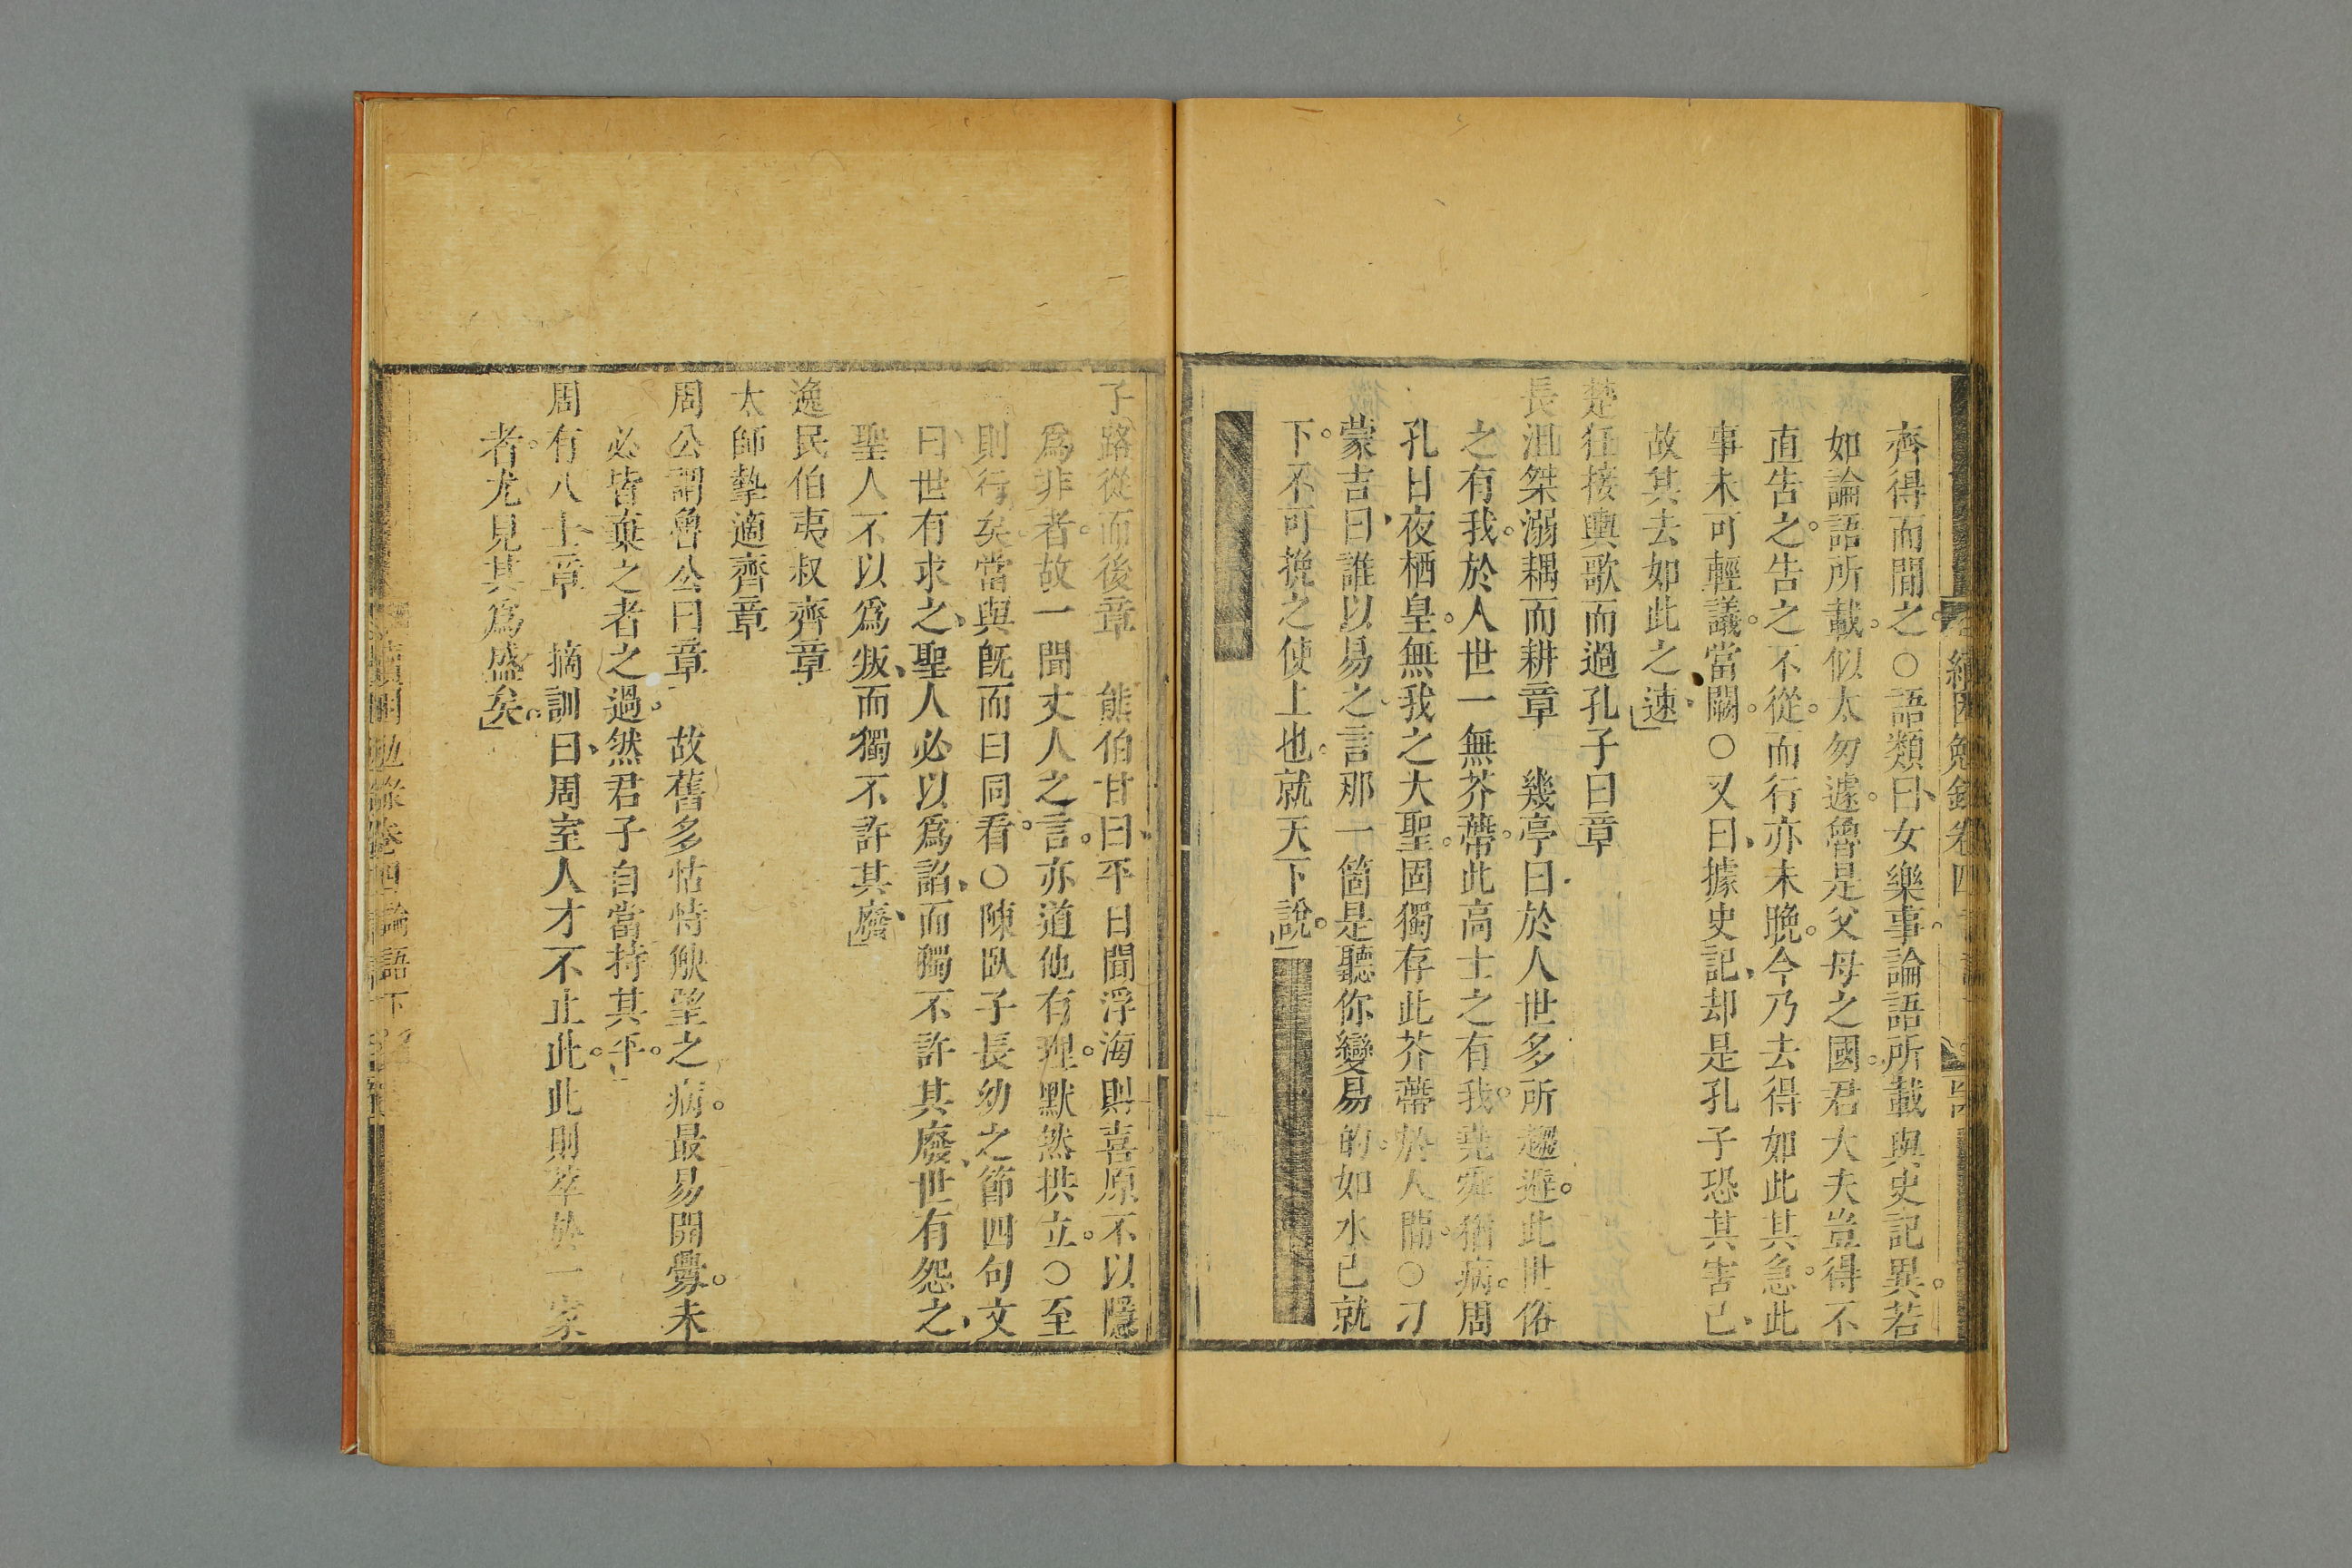 續困勉錄卷四
齊得而間之○語類曰女樂事論語所載與史記異若
如論語所載似太匆遽魯是父母之國君大夫豈得不
直告之告之不從而行亦未晚今乃去得如此其急此
事未可輕議當闕○又曰據史記却是孔子恐其害己
故其去如此之速
楚狂接輿歌而過孔子曰章
長沮桀溺耦而耕章　幾亭曰於人世多所趨避此世俗
之有我於人世一無芥蔕此高士之有我堯舜猶病周
孔日夜栖皇無我之大聖固獨存此芥蔕於人間○刁
蒙吉曰誰以易之言那一箇是聽你變易的如水已就
下不可挽之使上也就天下說
子路從而後章　熊伯甘曰平日聞浮海則喜原不以隱
爲非者故一聞丈人之言亦道他有理默然拱立○至
則行矣當與旣而曰同看○陳臥子長幼之節四句文
曰世有求之聖人必以爲諂而獨不許其廢世有怨之
聖人不以爲叛而獨不許其廢
逸民伯夷叔齊章
太師摯適齊章
周公謂魯公曰章　故舊多怙恃觖望之病最易開釁未
必皆棄之者之過然君子自當持其平
周有八士章　摘訓曰周室人才不止此此則萃於一家
者尤見其爲盛矣
勉錄卷四論語下